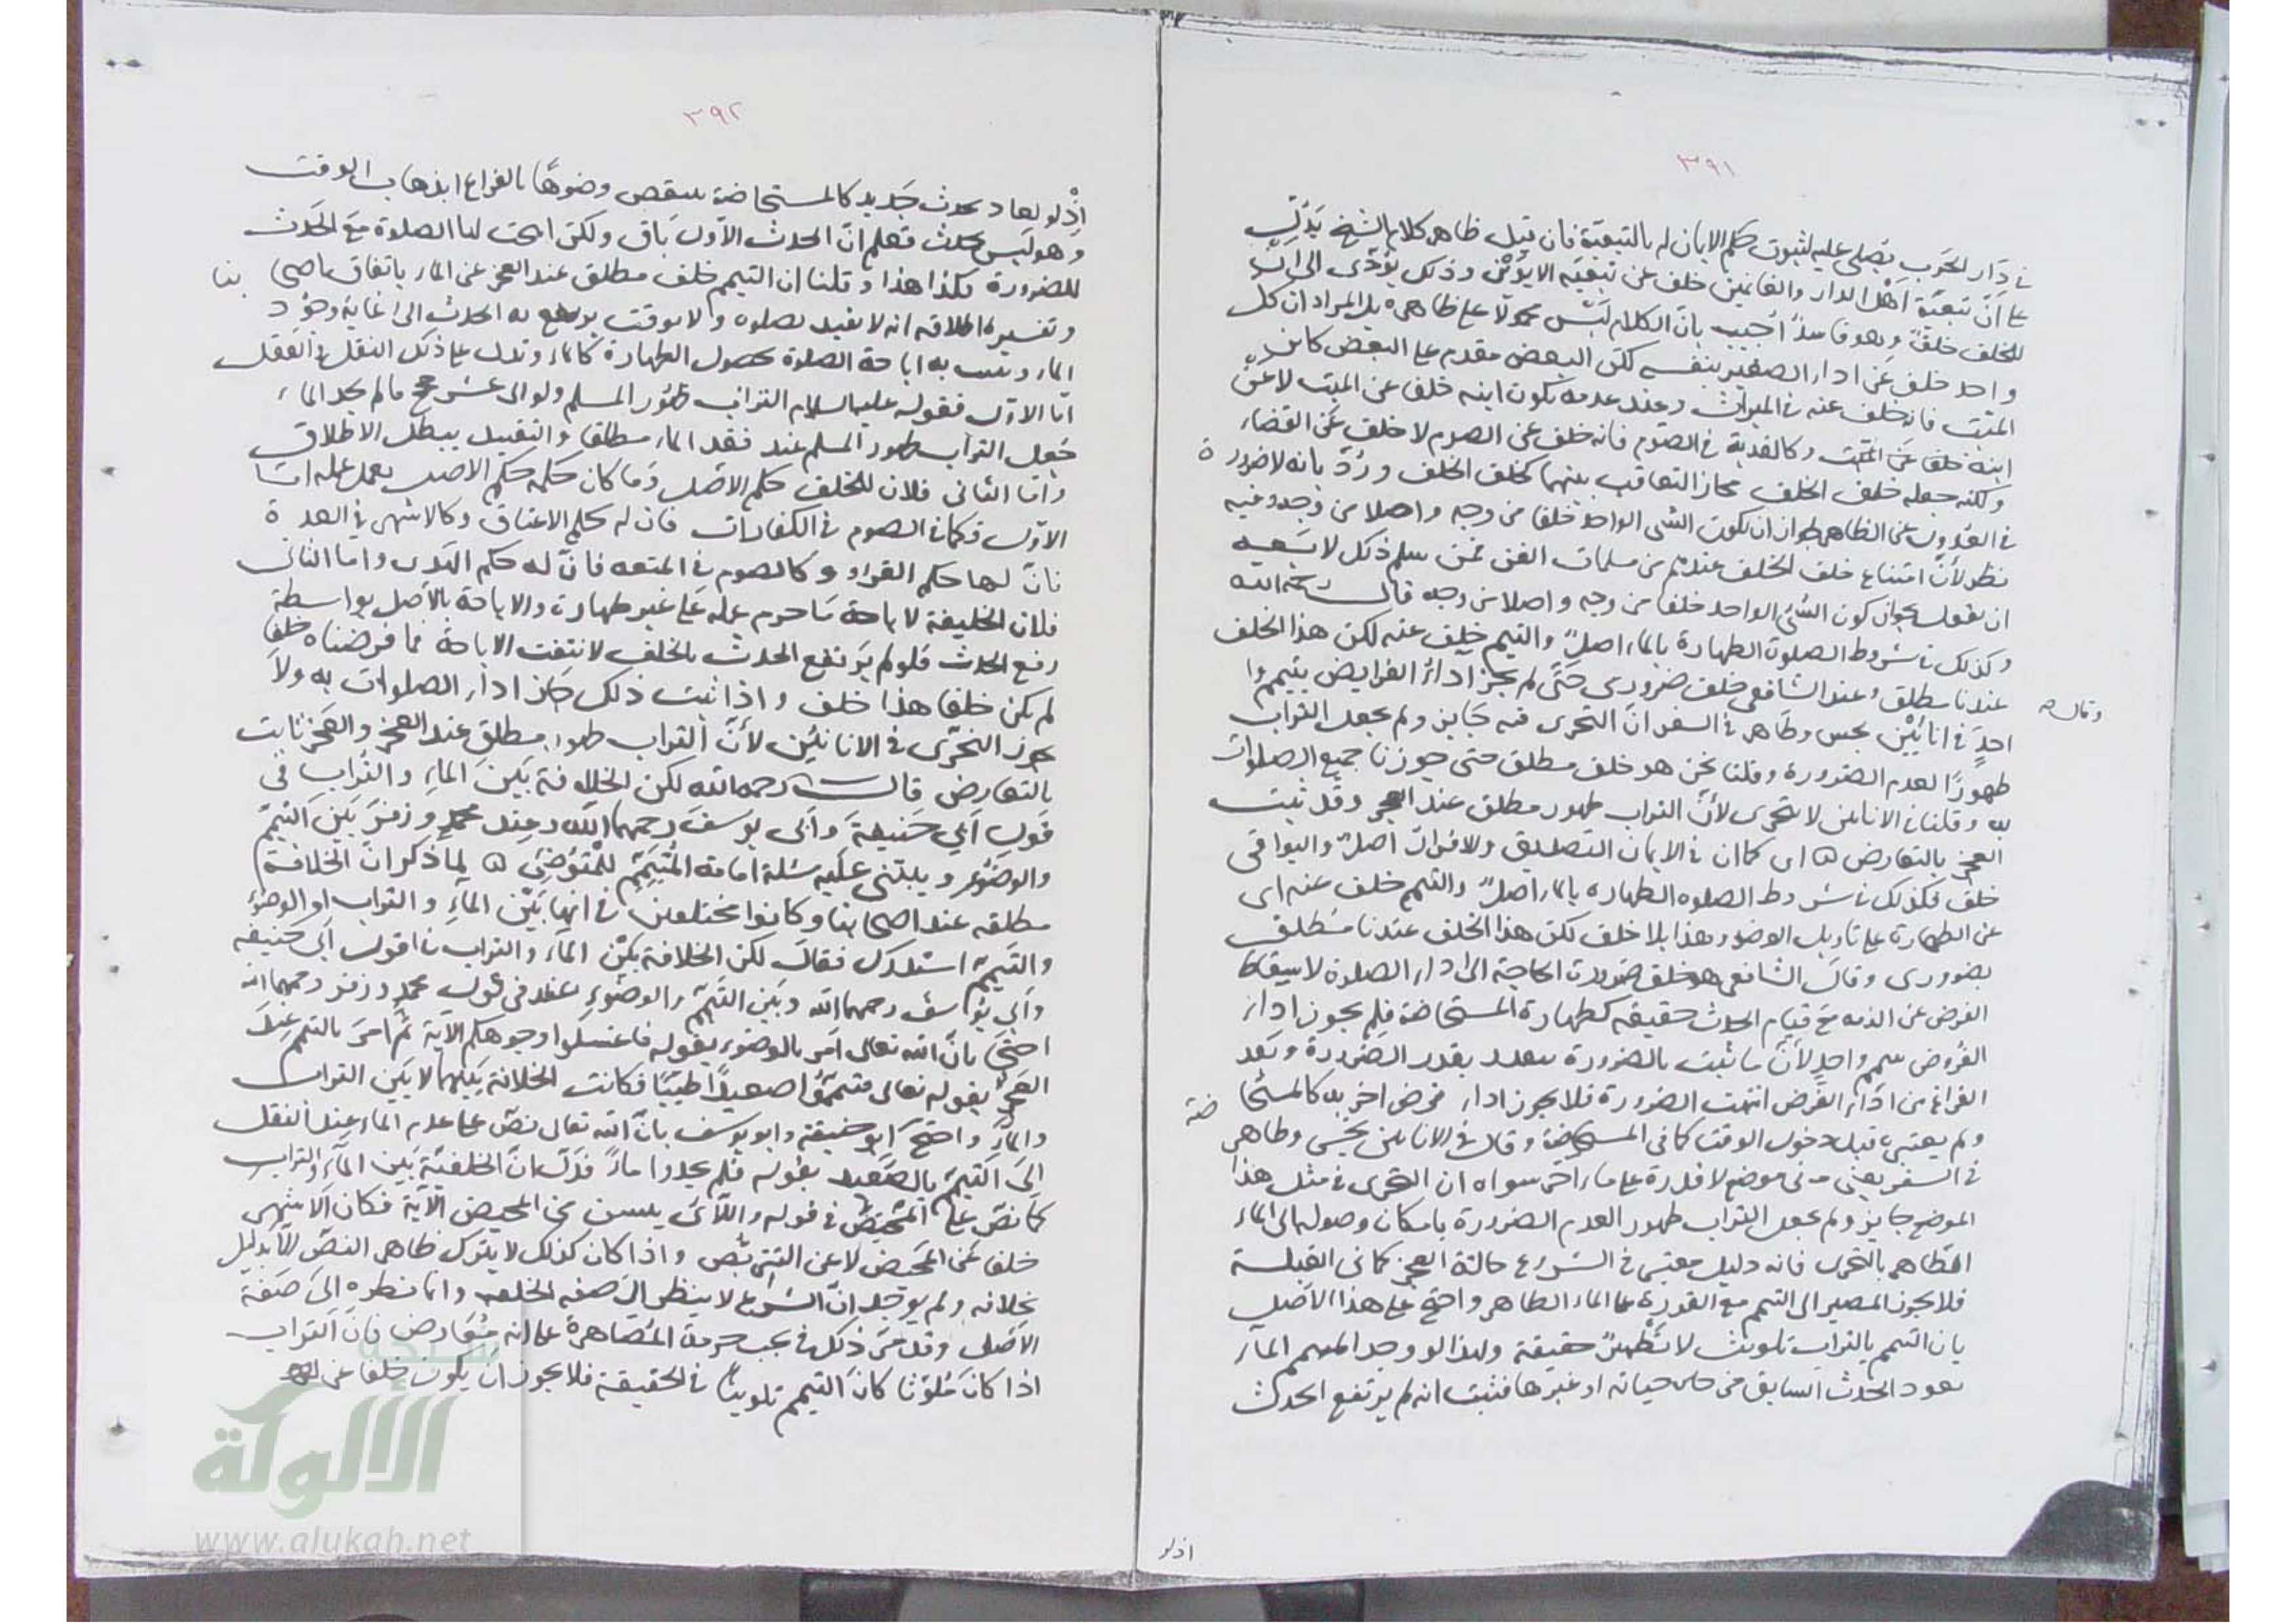 ٣٩١
في دار الحرب يصلى عليه لثبوت حكم الايمان له بالتبعية فان قيل ظاهر كلام الشيخ يدل
على ان تبعية اهل الدار والغانمين خلف عن تبعية الابوين وذلك يؤدى الى ان
للخلف خلفا وهو فاسد اجيب بان الكلام ليس محمولا على ظاهره بل المراد ان كل
واحد خلف عن اداء الصغير بنفسه لكن البعض مقدم على البعض كابن
الميت فانه خلف عنه في الميراث وعند عدمه يكون ابنه خلفا عن الميت لا عن
ابنه خلفا عن الميت وكالفدية في الصوم فانه خلف عن الصوم لا خلف عن القضاء
ولكنه جعله خلف الخلف مجاز التعاقب بينهما كخلف الخلف ورد بانه لا ضرورة
في العدول عن الظاهر لجواز ان يكون الشى الواحد خلفا من وجه واصلا من وجه وفيه
نظر لأن امتناع خلف الخلف عندهم من مسلمات الفن فمن سلم ذلك لا يسعه
ان يقول بجواز كون الشئ الواحد خلفا من وجه واصلا من وجه قال رحمه الله
وكذلك في شروط الصلوة الطهارة بالماء اصل والتيمم خلف عنه لكن هذا الخلف
عندنا مطلق وعند الشافعى خلف ضرورى حتى لم يجز اداء الفرايض بتيمم وا
وقال
احد في انائين نجس وطاهر في السفر ان التحرى فيه جايز ولم يجعل التراب
طهورا لعدم الضرورة وقلنا نحن هو خلف مطلق حتى جوزنا جميع الصلوات
به وقلنا في الاناين لا يتحرى لأن التراب طهور مطلق عند العجز وقد ثبت
العجز بالتعارض اى كما ان في الايمان التصديق والاقرار اصل والبواقى
خلف فكذلك في شروط الصلوه الطهاره بالماء اصل والتيمم خلف عنه اى
عن الطهارة على تاويل الوضوء وهذا بلا خلف لكن هذا الخلف عندنا مطلق
بضرورى وقال الشافعى هو خلف ضرورة الحاجة الى اداء الصلوة لاسقاط
الفرض عن الذمه مع قيام الحدث حقيقة كطهارة المستحاضة فلم يجوز اداء
الفروض بتيمم واحد لأن ما ثبت بالضرورة يتقدر بقدر الضرورة وبعد
الفراغ من اداء الفرض انتهت الضرورة فلا يجوز اداء فرض اخر به كالمستحاضة
ولم يعتبر ما قبل دخول الوقت كما فى المستحاضة وقال في الاناين نجس وطاهر
في السفر يعنى فى موضع لا قدرة على ماء اخر سواه ان التحرى في مثل هذا
الموضع جايز ولم يجعل التراب طهور العدم الضرورة بامكان وصوله الى الماء
الطاهر بالتحرى فانه دليل معتبر في الشرع حالة العجز كما فى القبلة
فلا يجوز المصير الى التيمم مع القدرة على الماء الطاهر واحتج على هذا الاصل
بان التيمم بالتراب تلويث لا تطهير حقيقة ولهذا لو وجد المتيمم الماء
يعود الحدث السابق من حيانه او غيرها فثبت انه لم يرتفع الحدث
اذ لو
٣٩٢
اذ لو لعاد بحدث جديد كالمستحاضة ينتقض وضوها بالفراغ ابذهاب الوقت
وهو ليس بحدث فعلم ان الحدث الاول باق ولكن ابيحت لها الصلوة مع الحدث
للضرورة فكذا هذا وقلنا ان التيمم خلف مطلق عند العجز عن الماء باتفاق اصحابنا
وتفسير اطلاقه انه لا يقيد بصلوه ولا بوقت يرتفع به الحدث الى غاية وجود
الماء ويثبت به اباحة الصلوة بحصول الطهارة كالماء ويدل على ذلك النقل والعقل
اما الاول فقوله عليه السلام التراب طهور المسلم ولو الى عشر حجج مالم يجد الماء
جعل التراب طهور المسلم عند فقد الماء مطلقا والتقييد يبطل الاطلاق
واما الثانى فلان للخلف حكم الاصل وما كان حكمه حكم الاصل يعمل عمله اما
الاول فكما في الصوم في الكفارات فان له حكم الاعتاق وكالاشهر في العدة
فان لها حكم القراء وكالصوم في المتعه فان له حكم الهدى واما الثانى
فلان الخليفة لاباحة ما حرم عمله على غير طهارة والاباحة بالاصل بواسطة
رفع الحدث فلو لم يرتفع الحدث بالخلف لانتفت الاباحة فما فرضناه خلفا
لم يكن خلفا هذا خلف واذا ثبت ذلك جاز اداء الصلوات به ولا
يجوز التحرى في الانائين لأن التراب طهور مطلق عند العجز والعجز ثابت
بالتعارض قال رحمه الله لكن الخلافة بين الماء والتراب في
قول ابى حنيفة وابى يوسف رحمهما الله وعند محمد وزفر بين التيمم
والوضوء ويبتنى عليه مسئلة امامة المتيمم للمتوضى لما ذكر ان الخلافة
مطلقه عند اصحابنا وكانوا مختلفين في انها بين الماء والتراب او الوضوء
والتيمم استدرك فقال لكن الخلافة بين الماء والتراب في قول ابى حنيفه
وابى يوسف رحمهما الله وبين التيمم والوضوء عند فى قول محمد وزفر رحمهما الله
احتجا بان الله تعالى امر بالوضوء بقوله فاغسلوا وجوهكم الآية ثم امر بالتيمم عند
العجز بقوله تعالى فتيمموا صعيدا طيبا فكانت الخلافة بينهما لا بين التراب
والماء واحتج ابو حنيفة وابو يوسف بان الله تعالى نص على عدم الماء عند النقل
الى التيمم بالصعيد بقوله فلم يجدوا ماء فدل ان الخلفية بين الماء والتراب
كما نص على المحيض في قوله واللآئى يئسن من المحيض الآية فكان الاشهر
خلفا عن المحيض لا عن التربص واذا كان كذلك لا يترك ظاهر النص الا بدليل
بخلافه ولم يوجد ان الشرع لا ينظر الى صفه الخلف وانما نظره الى صفة
الاصل وقد مر ذلك في بحث حرمة المصاهرة على انه معارض فان التراب
اذا كان ملوثا كان التيمم تلويثا في الحقيقة فلا يجوز ان يكون خلفا عن
شبكة
الألوكة
www.alukah.net